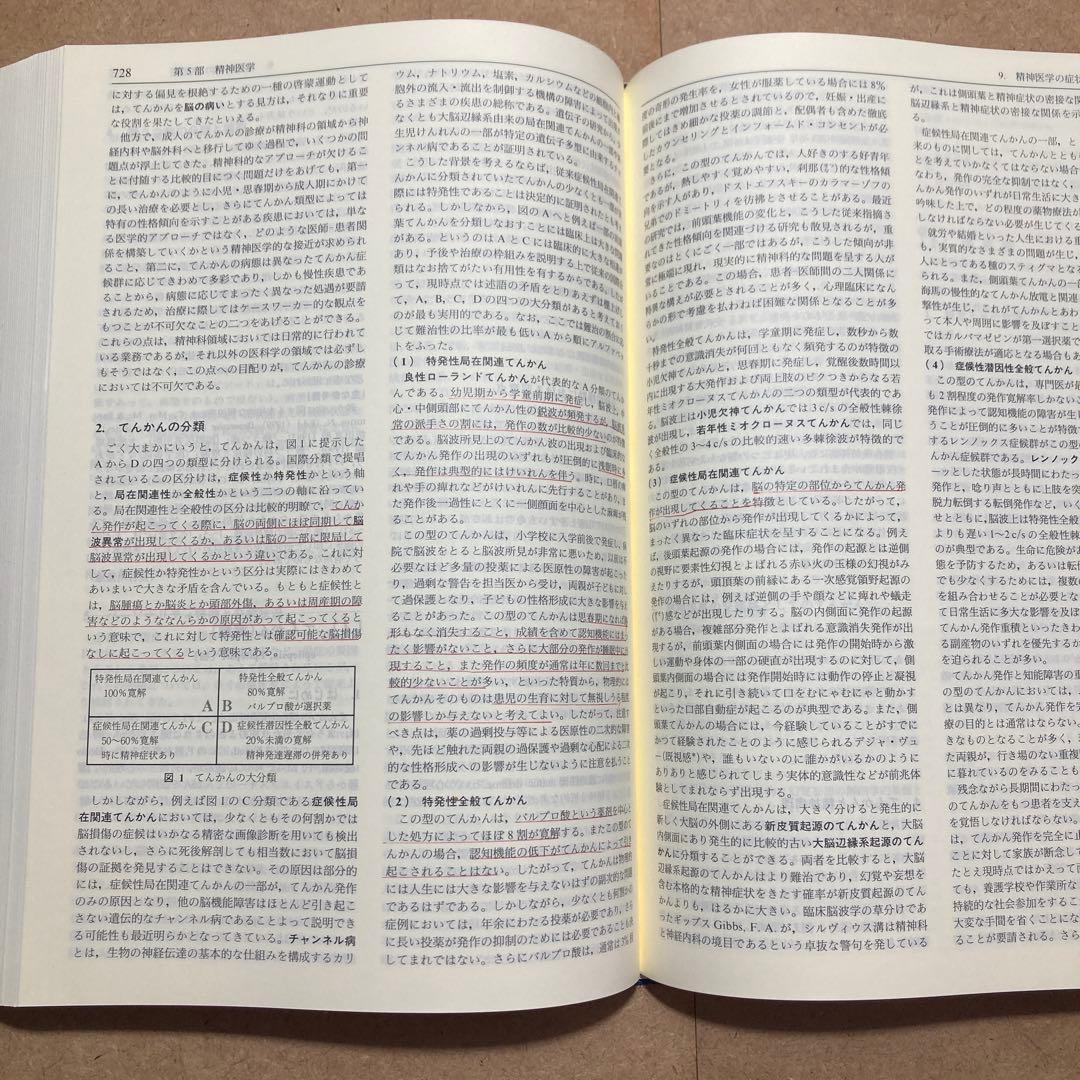 728 第5部 精神医学
に対する偏見を根絶するための一種の啓蒙運動として
は，てんかんを脳の病いとする見方は，それなりに重要
な役割を果たしてきたといえる。
他方で，成人のてんかんの診療が精神科の領域から神
経内科や脳外科へと移行してゆく過程で，いくつかの問
題点が浮上してきた。精神科的なアプローチが欠けるこ
とに付随する比較的目につく問題だけをあげても，第一
に，てんかんのように小児・思春期から成人期にかけて
の長い治療を必要とし，さらにてんかん類型によっては
特有の性格傾向を示すことがある疾患においては，単な
る医学的アプローチではなく，どのような医師-患者関
係を構築していくかという精神医学的な接近が求められ
ること，第二に，てんかんの病態は異なったてんかん症
候群に応じてきわめて多彩であり，しかも慢性疾患であ
ることから，病態に応じてまったく異なった処遇が要請
されるため，治療に際してはケースワーカー的な観点を
もつことが不可欠なことの二つをあげることができる。
これらの点は，精神科領域においては日常的に行われて
いる業務であるが，それ以外の医科学の領域では必ずし
もそうではなく，この点への目配りが，てんかんの診療
においては不可欠である。
2. てんかんの分類
ごく大まかにいうと，てんかんは，図1に提示した
AからDの四つの類型に分けられる。国際分類で提唱
されているこの区分けは，症候性か特発性かという軸
と，局在関連性か全般性かという二つの軸に沿ってい
る。局在関連性と全般性の区分は比較的明瞭で，てんか
ん発作が起こってくる際に，脳の両側にほぼ同期して脳
波異常が出現してくるか，あるいは脳の一部に限局して
脳波異常が出現してくるかという違いである。これに対
して，症候性か特発性かという区分は実際にはきわめて
あいまいで大きな矛盾を含んでいる。もともと症候性と
は，脳腫瘍とか脳炎とか頭部外傷，あるいは周産期の障
害などのようななんらかの原因があって起こってくると
いう意味で，これに対して特発性とは確認可能な脳損傷
なしに起こってくるという意味である。
特発性局在関連てんかん
100％寛解
A
特発性全般てんかん
80％寛解
B バルプロ酸が選択薬
症候性局在関連てんかん C
50～60％寛解
時に精神症状あり
D 症候性潜因性全般てんかん
20％未満の寛解
精神発達遅滞の併発あり
図1 てんかんの大分類
しかしながら，例えば図1のC分類である症候性局
在関連てんかんにおいては，少なくともその何割かでは
脳損傷の症候はいかなる精密な画像診断を用いても検出
されないし，さらに死後解剖しても相当数において脳損
傷の証拠を発見することはできない。その原因は部分的
には，症候性局在関連てんかんの一部が，てんかん発作
のみの原因となり，他の脳機能障害はほとんど引き起こ
さない遺伝的なチャンネル病であることよって説明でき
る可能性も最近明らかとなってきている。チャンネル病
とは，生物の神経伝達の基本的な仕組みを構成するカリ
ウム，ナトリウム，塩素，カルシウムなどの細胞
胞外の流入・流出を制御する機構の障害によって
るさまざまな疾患の総称である。遺伝子の研究から，
なくとも大脳辺縁系由来の局在関連てんかんの一部や
生児けんれんの一部が特定の遺伝子多型に由来する
ンネル病であることが証明されている。
こうした背景を考えるならば，従来症候性局在関連
んかんに分類されていたてんかんの少なくとも一部は
際には特発性であることは決定的に証明されたともい
る。しかしながら，図のAへと例えば一部の側頭
葉てんかんを分類しなおすことには臨床上は大きな
がある。というのはAとCには臨床的に大きな
があり，予後や治療の枠組みを説明する上で従来の
類はなお捨てがたい有用性を有するからである。
って，現時点では述語の矛盾をとりあえずは棚上げし
て，A，B，C，Dの四つの大分類があると考えておく
のが最も実用的である。なお，ここでは難治の割合に応
じて難治性の比率が最も低いAから順にアルファベッ
トをふった。
（1） 特発性局在関連てんかん
良性ローランドてんかんが代表的なA分類のてんか
んである。幼児期から学童前期に発症し，脳波上，
心・中側頭部にてんかん性の鋭波が頻発するが，脳波異
常の派手さの割には，発作の数が比較的少ないのが特徴
である。脳波所見上のてんかん波の出現および
てんかん発作の出現のいずれもが圧倒的に
く，発作は典型的にはけいれんを伴う。時に，口唇の痺
れや手の痺れなどがけいれんに先行することがあり，ま
た発作後一過性にとくに一側顔面を中心とした麻痺が
ることがある。
この型のてんかんでは，小学校に入学前後で発症し，病
院で脳波をとると脳波所見が非常に悪いため，以前は不
必要なほど多量の投薬による医原性の障害が起こった
り，過剰な警告を担当医から受け，両親が子どもに対し
て過保護となり，子どもの性格形成に大きな影響を与え
ることがあった。この型のてんかんは思春期になれば
形もなく消失すること，成績を含めて認知機能にはまっ
たく影響がないこと，さらに大部分の発作が睡眠中に出
現すること，また発作の頻度が通常は年に数回までと比
較的少ないことが多い，といった特質から，物理的には
てんかんそのものは患児の生育に対して無視しうる程度
の影響しか与えないと考えてよい。したがって，注意す
べき点は，薬の過剰投与等による医原性の二次的な障害
や，先ほど触れた両親の過保護や過剰な心配による二次
的な性格形成への影響が生じないように注意を払うこと
である。
（2） 特発性全般てんかん
この型のてんかんは，バルプロ酸という薬剤を中心と
した処方によってほぼ8割が寛解する。またこの型のて
んかんの場合，認知機能の低下がてんかんによって引き
起こされることはない。したがって，てんかんは物理的
には人生には大きな影響を与えないはずの副次的な問題
であるはずである。しかしながら，少なくとも何割かの
症例においては，年余にわたる投薬が必要であり，さら
に長い投薬が発作の抑制のためには必要であることも決
してまれではない。さらにバルプロ酸は，通常は3％程
9. 精神医学の症状
の奇形の発生率を，女性が服薬している場合には8％
前後にまで増加させるとされているので，妊娠・出産に
際してはきめ細かな投薬の調節と，配偶者も含めた徹底
したカウンセリングとインフォームド・コンセントが必
要となる。
さらに，この型のてんかんでは，人好きのする好青年
であるが，熱しやすく覚めやすい，刹那(*)的な性格傾
向を示す人があり，ドストエフスキーのカラマーゾフの
兄弟でのドミートリィを彷彿とさせることがある。最近
の研究では，前頭葉機能の変化と，こうした従来指摘さ
れてきた性格傾向を関連づける研究も散見されるが，重
要なのはとにごく一部ではあるが，こうした傾向が非
常に極端に現れ，現実的に精神科的な問題を呈する人が
いることである。この場合，患者-医師間の二人関係に
特異な構えが必要とされることが多く，心理臨床になん
らかの形で考慮を払わねば困難な関係となることが多
特発性全般てんかんは，学童期に発症し，数秒から数
十秒までの意識消失が何回ともなく頻発するのが特徴の
小児欠神てんかんと，思春期に発症し，覚醒後数時間以
内に出現する大発作および両上肢のビクつきからなる若
年性ミオクローヌスてんかんの二つの類型が代表的であ
る。脳波上は小児欠神てんかんでは3c/sの全般性棘徐
波が出現し，若年性ミオクローヌスてんかんでは，同じ
く全般性の3～4c/sの比較的速い多棘徐波が特徴的で
ある。
（3） 症候性局在関連てんかん
この型のてんかんは，脳の特定の部位からてんかん発
作が出現してくることを特徴としている。したがって，
脳のいずれの部位から発作が出現してくるかによって，
まったく異なった臨床症状を呈することになる。例え
ば，後頭葉起源の発作の場合には，発作の起源とは逆側
の視野に要素性幻視とよばれる赤い火の玉様の幻視がみ
えたりするが，頭頂葉の前縁にある一次感覚領野起源の
発作の場合には，例えば逆側の手や顔などに痺れや蟻走
感などが出現したりする。脳の内側面に発作の起源
がある場合，複雑部分発作とよばれる意識消失発作が出
現するが，前頭葉内側面の場合には発作の開始時から激
しい運動や身体の一部の硬直が出現するのに対して，側
頭葉内側面の場合には発作開始時には動作の停止と凝視
が起こり，それに引き続いて口をむにゃむにゃと動かす
といった口部自動症が起こるのが典型である。また，側
頭葉てんかんの場合には，今経験していることがすでに
かつて経験されたことのように感じられるデジャ・ヴュ
ー(既視感*)や，誰もいないのに誰かがいるかのように
ありありと感じられてしまう実体的意識性などが前兆体
験としてまれならず出現する。
症候性局在関連てんかんは，大きく分けると発生的に
新しく大脳の外側にある新皮質起源のてんかんと，大脳
内側面にあり発生的に比較的古い大脳辺縁系起源のてん
かんに分類することができる。両者を比較すると，大脳
辺縁系起源のてんかんはより難治であり，幻覚や妄想を
含む本格的な精神症状をきたす確率が新皮質起源のてん
かんよりも，はるかに大きい。臨床脳波学の草分けであ
ったギッブス Gibbs, F. A. が，シルヴィウス溝は精神科
と神経内科の境目であるという卓抜な警句を発している
が，これは側頭葉と精神症状の密接な関
脳辺縁系と精神症状の密接な関係を示
る。
症候性局在関連てんかんの一部，と
来のものに関しては，てんかんととも
とを考えていかなくてはならない場合
なわち，発作の完全な抑制ではなく，
ん発作のいずれが日常生活に大き
吟味した上で，どの程度の薬物療法が
しなければならない必要が生じてくる
就労や結婚といった人生における重
も，実質的なさまざまの問題が生じ，
人にとってある種のスティグマとなる
られる。また，側頭葉てんかんの一
海馬の慢性的なてんかん放電と関連
撃性が生じ，てんかんとあわ
って本人や周囲に影響を及ぼすこと
てはカルバマゼピンが第一選択薬で
取る手術療法が適応となる場合もあ
（4） 症候性潜因性全般てんかん
この型のてんかんは，専門医が最
も2割程度の発作寛解率しかないこ
発作によって認知機能の障害が生
うことが圧倒的に多いことが特徴で
するレンノックス症候群がこの型の
かん症候群である。レンノックス
ーッとした状態が長時間にわたっ
発作と，唸り声とともに上肢を突
脱力転倒する転倒発作など，いく
せとともに，脳波上は特発性全般
よりも遅い1～2c/sの全般性棘
のが典型である。生命に危険があ
態を予防するため，あるいは転倒
でも少なくするためには，複数の
を組み合わせることが必要となる
て日常生活に多大な影響を及ぼ
かん発作重積といったきわ
る副産物のいずれを優先するか
を迫られることが多い。
てんかん発作と知能障害の重
型のてんかんにおいては，
とは異なり，てんかん発作を完
療の目的とは通常はならない。
きなものとなることが多く，
た両親が，行き場のない重複
に暮れているのをみることも
残念ながら長期間にわたっ
のてんかんをもつ患者を支え
を覚悟しなければならない。
は，てんかん発作を完全に止
ことに対して家族が断念して
たとえ現時点ではかえって
ても，養護学校や作業所な
持続的な社会参加をするこ
大変な手間を省くことにな
ことが要請される。さら